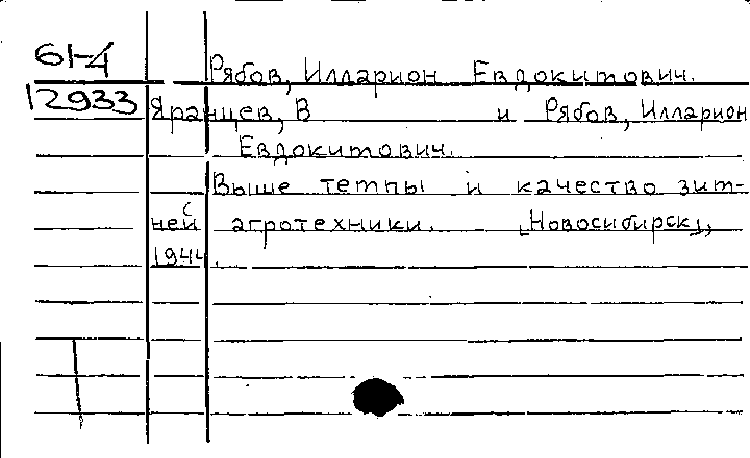 61-4
Рябов, Илларион Евдокитович.
12933
Яранцев, В и Рябов, Илларион
Евдокитович.
Выше темпы и качество зит-
ней С агротехники. [Новосибирск],
1944.